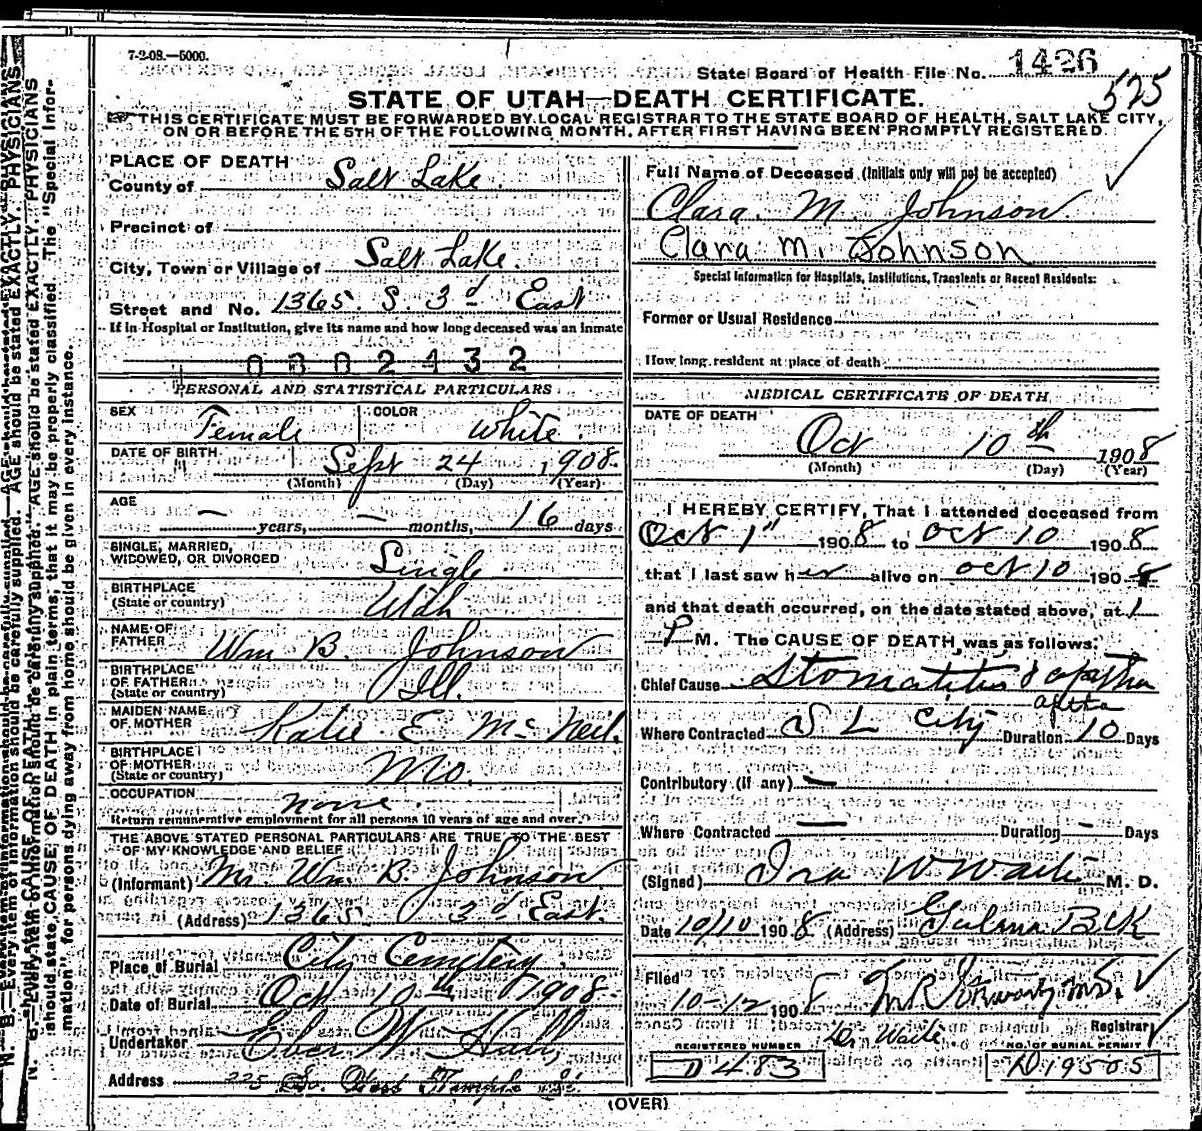 7-2-08.—5000.
State Board of Health File No. 1426
525
STATE OF UTAH—DEATH CERTIFICATE.
THIS CERTIFICATE MUST BE FORWARDED BY LOCAL REGISTRAR TO THE STATE BOARD OF HEALTH, SALT LAKE CITY,
ON OR BEFORE THE 5TH OF THE FOLLOWING MONTH, AFTER FIRST HAVING BEEN PROMPTLY REGISTERED.
PLACE OF DEATH
County of Salt Lake.
Precinct of
City, Town or Village of Salt Lake.
Street and No. 1365 S. 3d East
If in Hospital or Institution, give its name and how long deceased was an inmate
0002432
PERSONAL AND STATISTICAL PARTICULARS
SEX Female COLOR White.
DATE OF BIRTH Sept 24 1908.
(Month) (Day) (Year)
AGE
— years, — months, 16 days
SINGLE, MARRIED,
WIDOWED, OR DIVORCED Single
BIRTHPLACE
(State or country) Utah
NAME OF
FATHER Wm B. Johnson
BIRTHPLACE
OF FATHER
(State or country) Ill.
MAIDEN NAME
OF MOTHER Katie E. McNeil.
BIRTHPLACE
OF MOTHER
(State or country) Mo.
OCCUPATION none.
Return remunerative employment for all persons 10 years of age and over.
THE ABOVE STATED PERSONAL PARTICULARS ARE TRUE TO THE BEST
OF MY KNOWLEDGE AND BELIEF
(Informant) Mr. Wm. B. Johnson
(Address) 1365 3d East.
Place of Burial City Cemetery.
Date of Burial Oct 10th 1908.
Undertaker Eber W. Hall,
Address 225 So. West Temple St.
Full Name of Deceased (Initials only will not be accepted)
Clara. M Johnson.
Clara M. Johnson
Special Information for Hospitals, Institutions, Transients or Recent Residents:
Former or Usual Residence
How long resident at place of death
MEDICAL CERTIFICATE OF DEATH
DATE OF DEATH
Oct 10th 1908
(Month) (Day) (Year)
I HEREBY CERTIFY, That I attended deceased from
Oct 1" 1908 to Oct 10 1908
that I last saw her alive on Oct 10 1908
and that death occurred, on the date stated above, at 1
P M. The CAUSE OF DEATH was as follows:
Chief Cause Stomatitis
aptha
Where Contracted S L City Duration 10 Days
Contributory (if any) —
Where Contracted — Duration - Days
(Signed) Ira W Waite M. D.
Date 10/10 1908 (Address) Galena Blk
Filed
10-12 1908
Dr Waite Registrar
REGISTERED NUMBER NO. OF BURIAL PERMIT
D 483 D 19505
(OVER)
N. B.—Every item of information should be carefully supplied. AGE should be stated EXACTLY. PHYSICIANS
should state CAUSE OF DEATH in plain terms, that it may be properly classified. The "Special Infor-
mation" for persons dying away from home should be given in every instance.